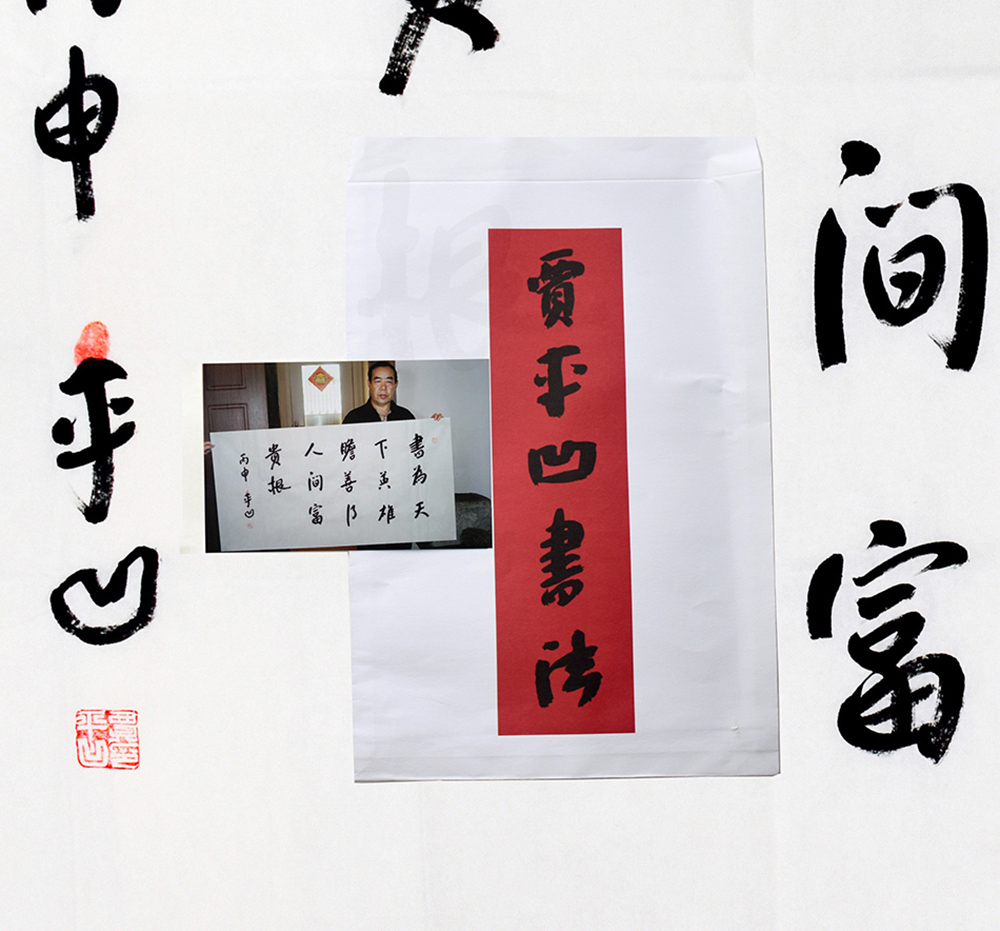 间富
賈平凹書法
書為天
下英雄
膽善得
人间富
贵根
丙申 平凹
申 平凹
賈平凹印